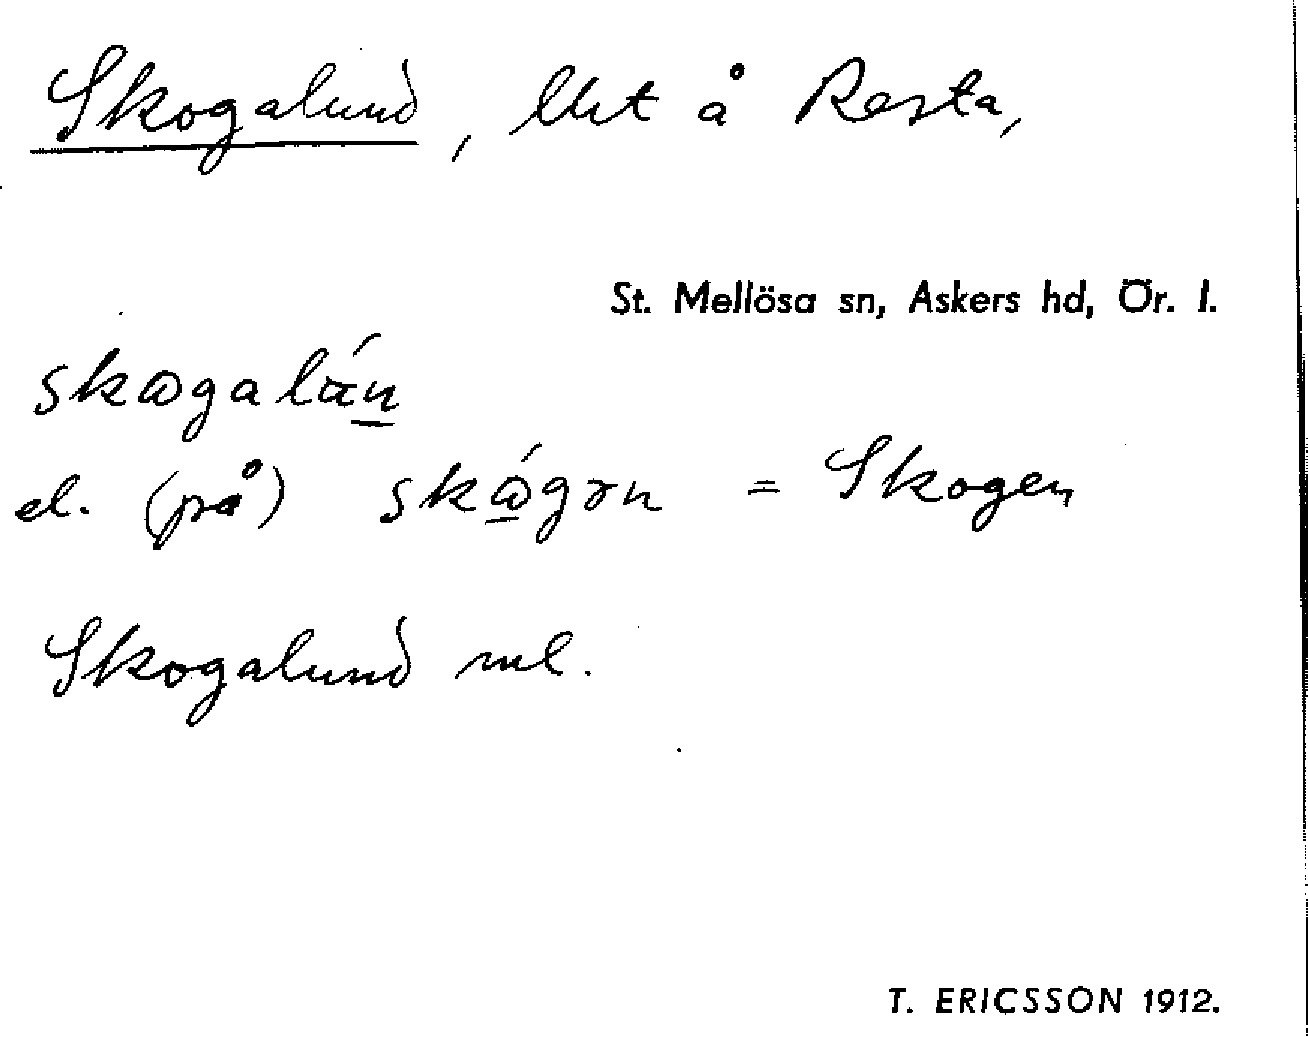 Skogalund, lht å Resta,
St. Mellösa sn, Askers hd, Ör. l.
el. (på) = Skogen
Skogalund ml.
T. ERICSSON 1912.